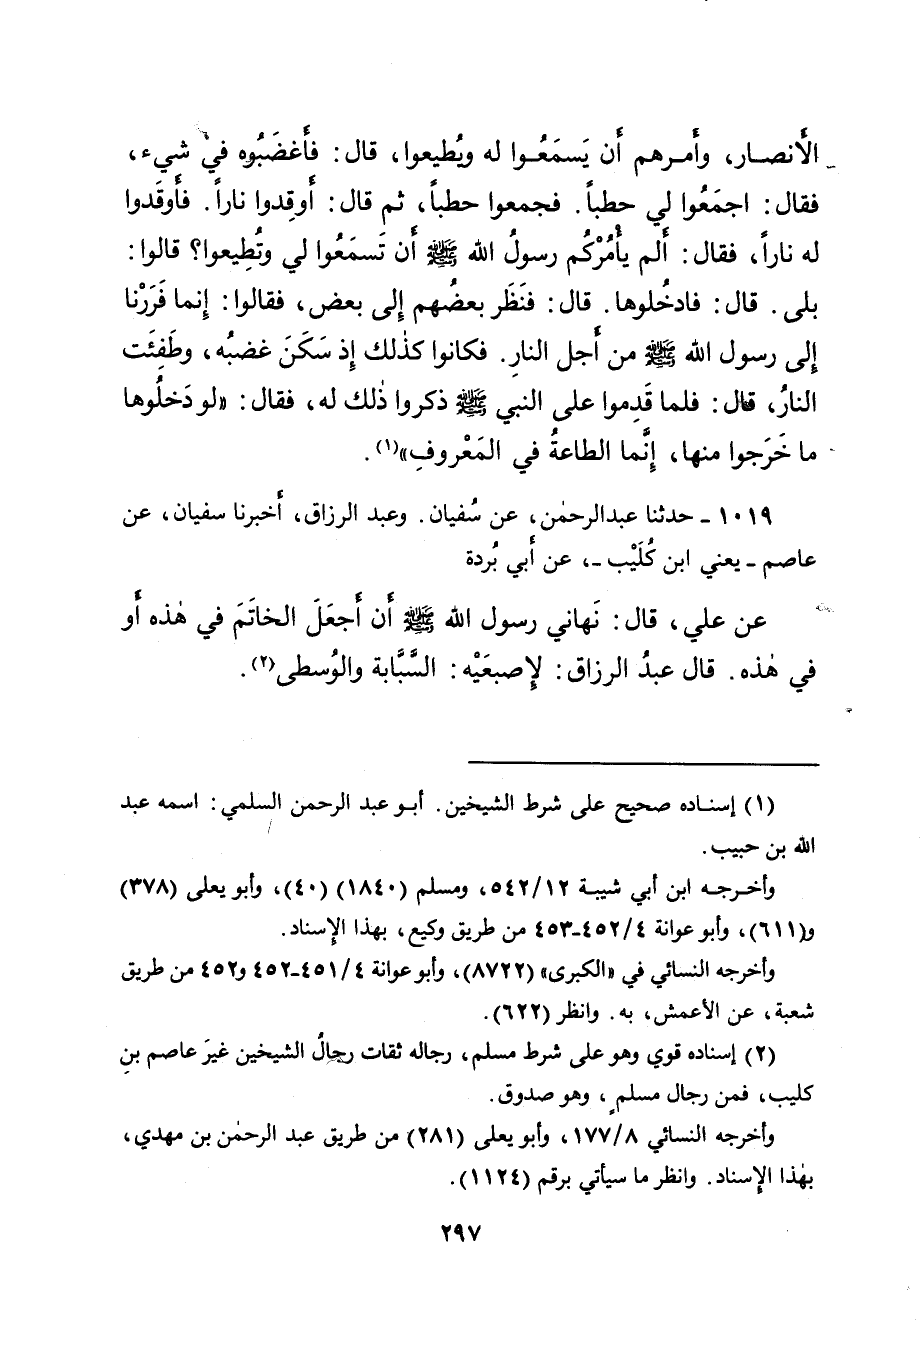 الأنصار، وأمرهم أن يَسمَعُوا له ويُطيعوا، قال: فأَغضَبُوه في شيء،
فقال: اجمَعُوا لي حطباً. فجمعوا حطباً، ثم قال: أَوقِدوا ناراً. فأَوقَدوا
له ناراً، فقال: أَلم يأْمُرْكم رسولُ الله ﷺ أَن تَسمَعُوا لي وتُطِيعوا؟ قالوا:
بلى. قال: فادخُلوها. قال: فنَظَر بعضُهم إلى بعض، فقالوا: إنما فَرَرْنا
إلى رسول الله ﷺ من أَجل النارِ. فكانوا كذلك إذ سَكَنَ غضبُه، وطَفِئَت
النارُ، قال: فلما قَدِموا على النبي ﷺ ذكروا ذٰلك له، فقال: «لو دَخلُوها
ما خَرَجوا منها، إنَّما الطاعةُ في المَعْروفِ»(١).
١٠١٩ - حدثنا عبدالرحمٰن، عن سُفيان. وعبد الرزاق، أَخبرنا سفيان، عن
عاصم - يعني ابن كُلَيْب -، عن أَبي بُردة
عن علي، قال: نَهاني رسول الله ﷺ أَن أَجعَلَ الخاتَمَ في هٰذه أَو
في هٰذه. قال عبدُ الرزاق: لإصبعَيْه: السَّبَّابة والوُسطى(٢).
(١) إسناده صحيح على شرط الشيخين. أبو عبد الرحمن السلمي: اسمه عبد
الله بن حبيب.
وأخرجه ابن أبي شيبة ٥٤٢/١٢، ومسلم (١٨٤٠) (٤٠)، وأبو يعلى (٣٧٨)
و(٦١١)، وأبو عوانة ٤٥٢/٤-٤٥٣ من طريق وكيع، بهذا الإسناد.
وأخرجه النسائي في «الكبرى» (٨٧٢٢)، وأبو عوانة ٤٥١/٤-٤٥٢ و٤٥٢ من طريق
شعبة، عن الأعمش، به. وانظر (٦٢٢).
(٢) إسناده قوي وهو على شرط مسلم، رجاله ثقات رجالُ الشيخين غيرَ عاصم بنِ
كليب، فمن رجال مسلمٍ، وهو صدوق.
وأخرجه النسائي ١٧٧/٨، وأبو يعلى (٢٨١) من طريق عبد الرحمٰن بن مهدي،
بهٰذا الإسناد. وانظر ما سيأتي برقم (١١٢٤).
٢٩٧